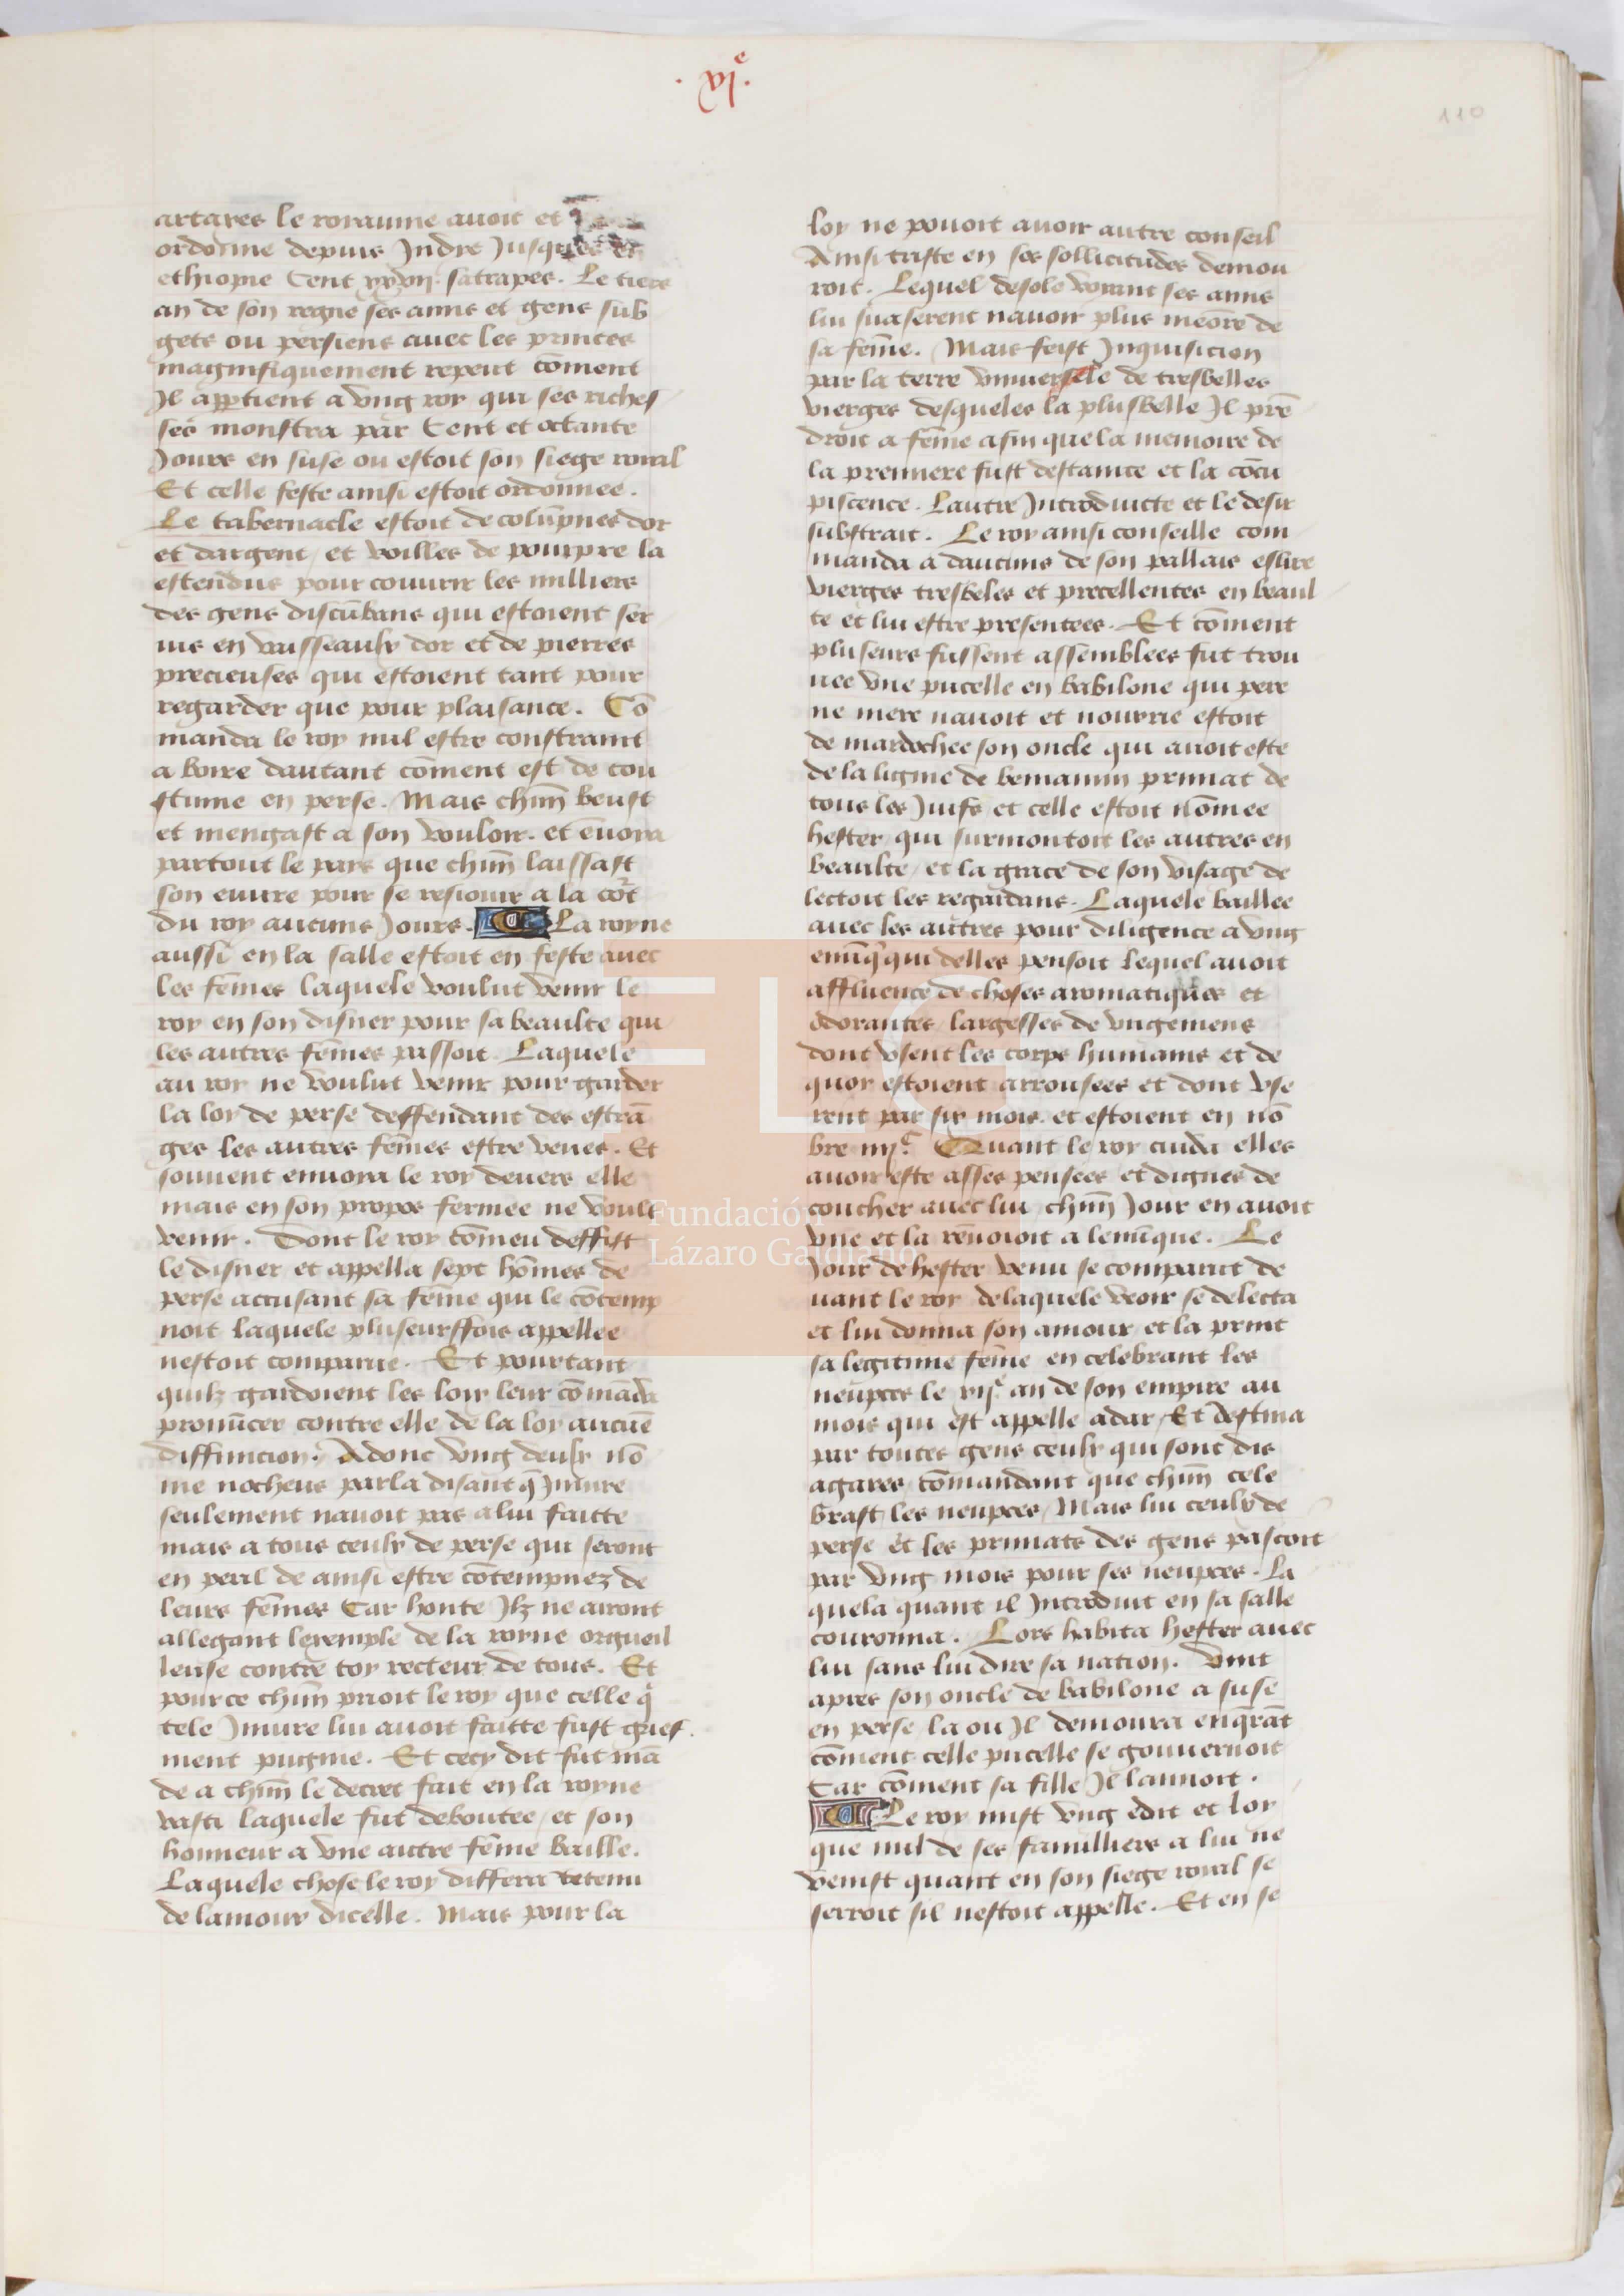 .vj.e
110
artaxes le royaume auoit et
ordonne depuis Jndye Jusques en
ethiopie Cent xxvij. satrapes. Le tiers
an de son regne ses amis et gens sub
gets ou persiens auec les princes
magnifiquement repeut cōment
Jl apptient a vng roy qui ses riches
ses monstra par Cent et octante
Jours en suse ou estoit son siege royal
Et celle feste ainsi estoit ordonnee.
Le tabernacle estoit de colūpnes dor
et dargent et voilles de pourpre la
estendus pour couurir les milliers
des gens discūbans qui estoient ser
uis en vaisseaulx dor et de pierres
precieuses qui estoient tant pour
regarder que pour plaisance. Cō
manda le roy nul estre constraint
a boire dautant cōment est de cou
stume en perse. Mais chūn beust
et mengast a son vouloir. et ēuoya
partout le pays que chūn laissast
son euure pour se resiouir a la cōrt
du roy aucuns Jours. La royne
aussi en la salle estoit en feste auec
les fēmes laquele voulut venir le
roy en son disner pour sa beaulte qui
les autres fēmes passoit. Laquele
au roy ne voulut venir pour garder
la loy de perse deffendant des estrā
ges les autres fēmes estre veues. Et
souuent enuoya le roy deuers elle
mais en son propos fermee ne voult
venir. Dont le roy cōmeu deffist
le disner et appella sept hōmes de
perse accusant sa fēme qui le cōtemp
noit laquele pluseurffois appellee
nestoit comparue. Et pourtant
quilz gardoient les loix leur cōmāda
pronūcer contre elle de la loy aucūe
diffinicion. Adonc vng deulx nō
me nocheus parla disant q̄ Jniure
seulement nauoit pas a lui faitte
mais a tous ceulx de perse qui seront
en peril de ainsi estre cōtempnez de
leurs fēmes Car honte Jlz ne auront
allegant lexemple de la royne orgueil
leuse contre toy recteur de tous. Et
pour ce chūn prioit le roy que celle q̄
tele Jniure lui auoit faitte fust grief
ment pugnie. Et cecy dit fut mā
de a chūn le decret fait en la royne
vasti laquele fut deboutee et son
honneur a vne autre fēme baille.
Laquele chose le roy differa detenu
de lamour dicelle. Mais pour la
loy ne pouoit auoir autre conseil
Ainsi triste en ses sollicitudes demou
roit. Lequel desole voiant ses amis
lui suaserent nauoir plus meōre de
sa fēme. Mais feist Jnquisicion
par la terre vniuersele de tresbelles
vierges desqueles la plusbelle Jl prē
droit a fēme afin que la memoire de
la premiere fust destainte et la cōcu
piscence. Lautre Jntroduicte et le desir
substrait. Le roy ainsi conseille com
manda a daucuns de son pallais eslire
vierges tresbeles et precellentes en beaul
te et lui estre presentees. Et cōment
pluseurs fussent assemblees fut trou
uee vne pucelle en babilone qui pere
ne mere nauoit et nourrie estoit
de mardochee son oncle qui auoit este
de la lignie de beniamin primat de
tous les Juifs et celle estoit nōmee
hester qui surmontoit les autres en
beaulte et la grace de son visage de
lectoit les regardans. Laquele baillee
auec les autres pour diligence a vng
enūq̄ qui delles pensoit lequel auoit
affluence de choses aromatiques et
odorantes largesses de vngemens
dont vsent les corps humains et de
quoy estoient arrousees et dont vse
rent par six mois. et estoient en nō
bre iiijc. Quant le roy cuida elles
auoir este asses pensees et dignes de
coucher auec lui chūn Jour en auoit
vne et la rēuoioit a lenūque. Le
Jour de hester venu se comparut de
uant le roy de laquele veoir se delecta
et lui donna son amour et la print
sa legitime fēme en celebrant les
neupces le vije an de son empire au
mois qui est appelle adar. Et destina
par toutes gens ceulx qui sont dis
agares cōmandant que chūn cele
brast les neupces. Mais lui ceulx de
perse et les primats des gens pascoit
par vng mois pour ses neupces. La
quela quant il Jntroduit en sa salle
couronna. Lors habita hester auec
lui sans lui dire sa nation. Vint
apres son oncle de babilone a suse
en perse la ou Jl demoura enq̄rāt
cōment celle pucelle se gouuernoit
Car cōment sa fille Jl lamoit.
Le roy mist vng edit et loy
que nul de ses familliers a lui ne
venist quant en son siege royal se
serroit sil nestoit appelle. Et en se
FLG
Fundación
Lázaro Galdiano